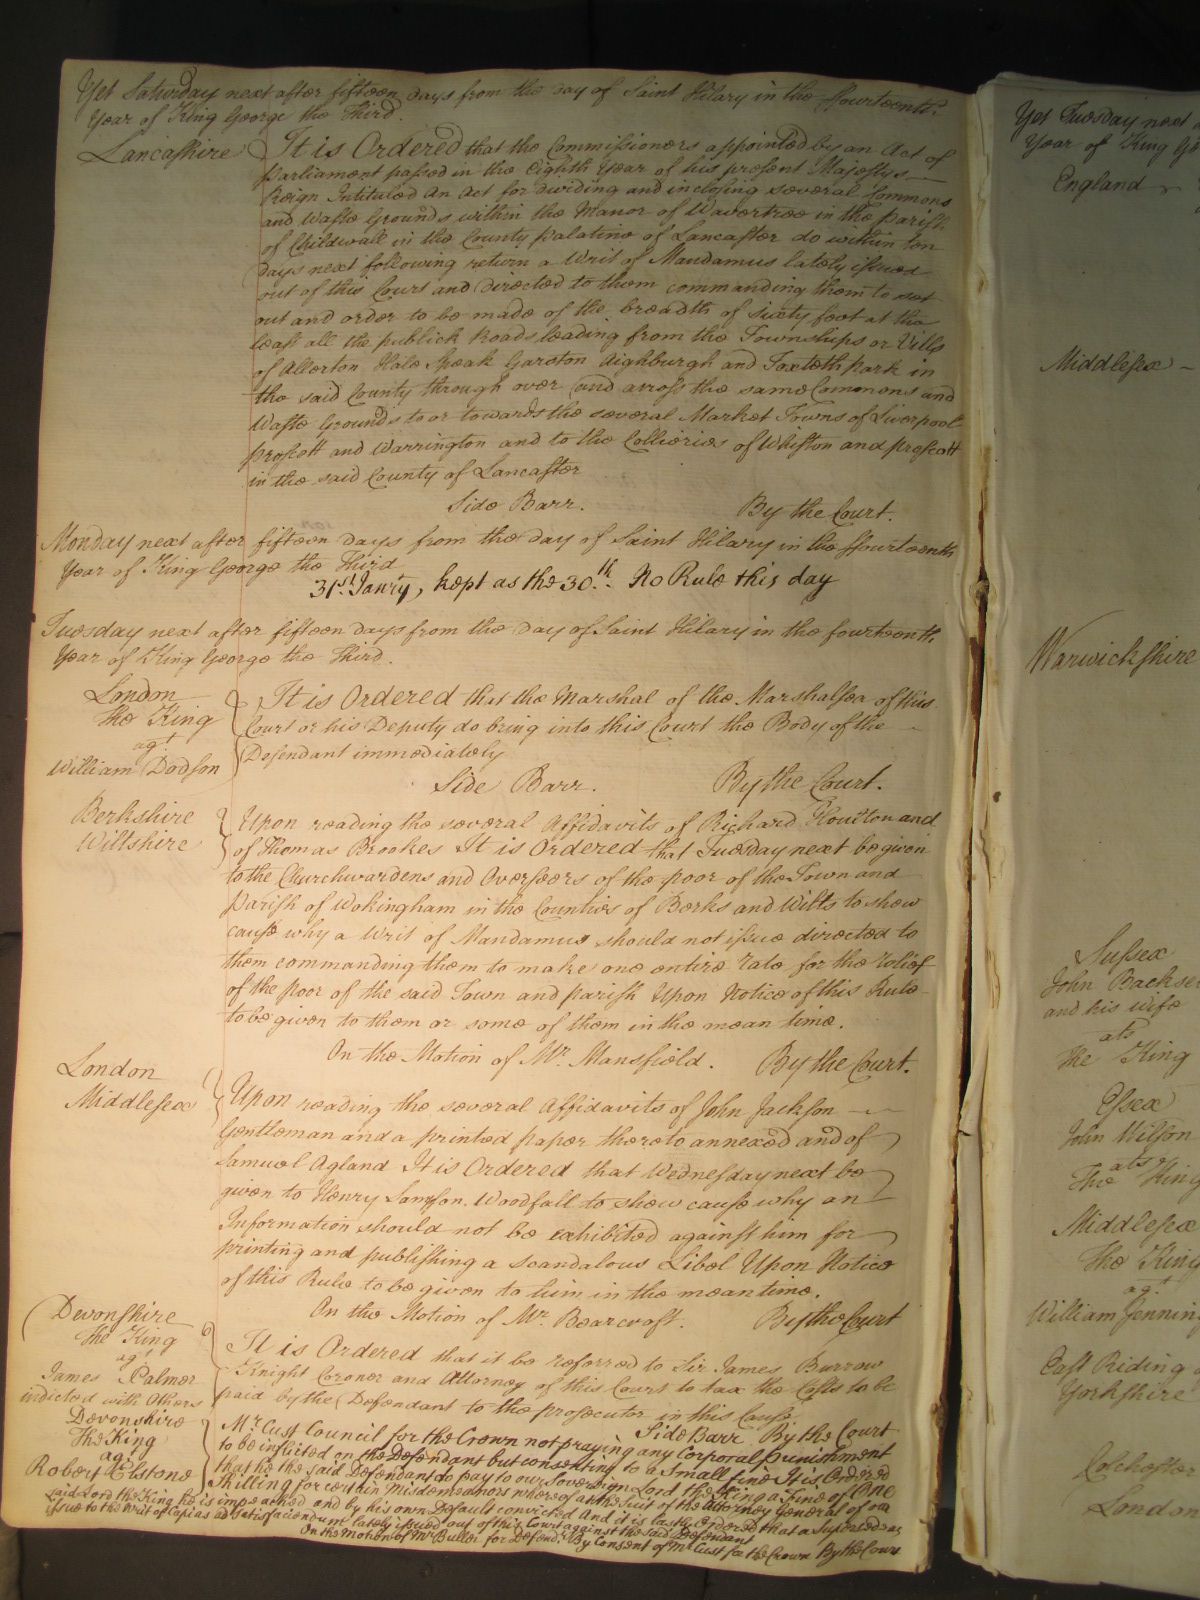 Yet Saturday next after fifteen days from the day of Saint Hilary in the ffourteenth
Year of King George the Third.
Lancashire It is Ordered that the Commissioners appointed by an Act of
Parliament passed in the Eighth Year of his present Majestys
Reign Intituled An Act for dividing and inclosing several Commons
and Waste Grounds within the Manor of Wavertree in the parish
of Childwall in the County palatine of Lancaster do within ten
days next following return a Writ of Mandamus lately issued
out of this Court and directed to them commanding them to set
out and order to be made of the breadth of sixty foot at the
least all the publick Roads leading from the Townships or Vills
of Allerton Hale Speak Garston Aighburgh and Toxteth park in
the said County through over and across the same Commons and
Waste Grounds to or towards the several Market Towns of Liverpool
prescott and Warrington and to the Collieries of Whiston and prescott
in the said County of Lancaster
Side Barr. By the Court.
Monday next after fifteen days from the day of Saint Hilary in the ffourteenth
Year of King George the Third
31st Janry, kept as the 30th. No Rule this day
Tuesday next after fifteen days from the day of Saint Hilary in the fourteenth
Year of King George the Third.
London
The King
agt
William Dodson
It is Ordered that the Marshal of the Marshalsea of this
Court or his Deputy do bring into this Court the Body of the
Defendant immediately
Side Barr. By the Court.
Berkshire
Wiltshire
Upon reading the several Affidavits of Richard Houlton and
of Thomas Brookes It is Ordered that Tuesday next be given
to the Churchwardens and Overseers of the poor of the Town and
Parish of Wokingham in the Counties of Berks and Wilts to shew
cause why a Writ of Mandamus should not issue directed to
them commanding them to make one entire rate for the relief
of the poor of the said Town and parish Upon Notice of this Rule
to be given to them or some of them in the mean time.
On the Motion of Mr. Mansfield. By the Court.
London
Middlesex
Upon reading the several Affidavits of John Jackson
Gentleman and a printed paper thereto annexed and of
Samuel Agland It is Ordered that Wednesday next be
given to Henry Sampson Woodfall to shew cause why an
Information should not be exhibited against him for
printing and publishing a scandalous Libel Upon Notice
of this Rule to be given to him in the mean time.
On the Motion of Mr. Bearcroft. By the Court
Devonshire
The King
agt
James Palmer
indicted with Others
It is Ordered that it be referred to Sir James Burrow
Knight Coroner and Attorney of this Court to tax the Costs to be
paid by the Defendant to the prosecutor in this Cause.
Side Barr By the Court
Devonshire
The King
agt
Robert Elstone
Mr Cust Council for the Crown not praying any Corporal punishment
to be inflicted on the Defendant but consenting to a small fine It is Ordered
that he the said Defendant do pay to our Sovereign Lord the King a Fine of One
Shilling for certain Misdemeanors whereof at the Suit of the Attorney General of our
said Lord the King he is impeached and by his own Default convicted And it is lastly Ordered that a Supersedeas
issue to the Writ of Capias ad Satisfaciendum lately issued out of this Court against the said Defendant
On the Motion of Mr Buller for Defendt. By Consent of Mr Cust for the Crown By the Court
Yet Tuesday next
Year of King
England
Middlesex
Warwickshire
Sussex
John
and his wife
ats
The King
Essex
John Wilson
ats
The King
Middlesex
The King
agt
William
East Riding
Yorkshire
Colchester
London